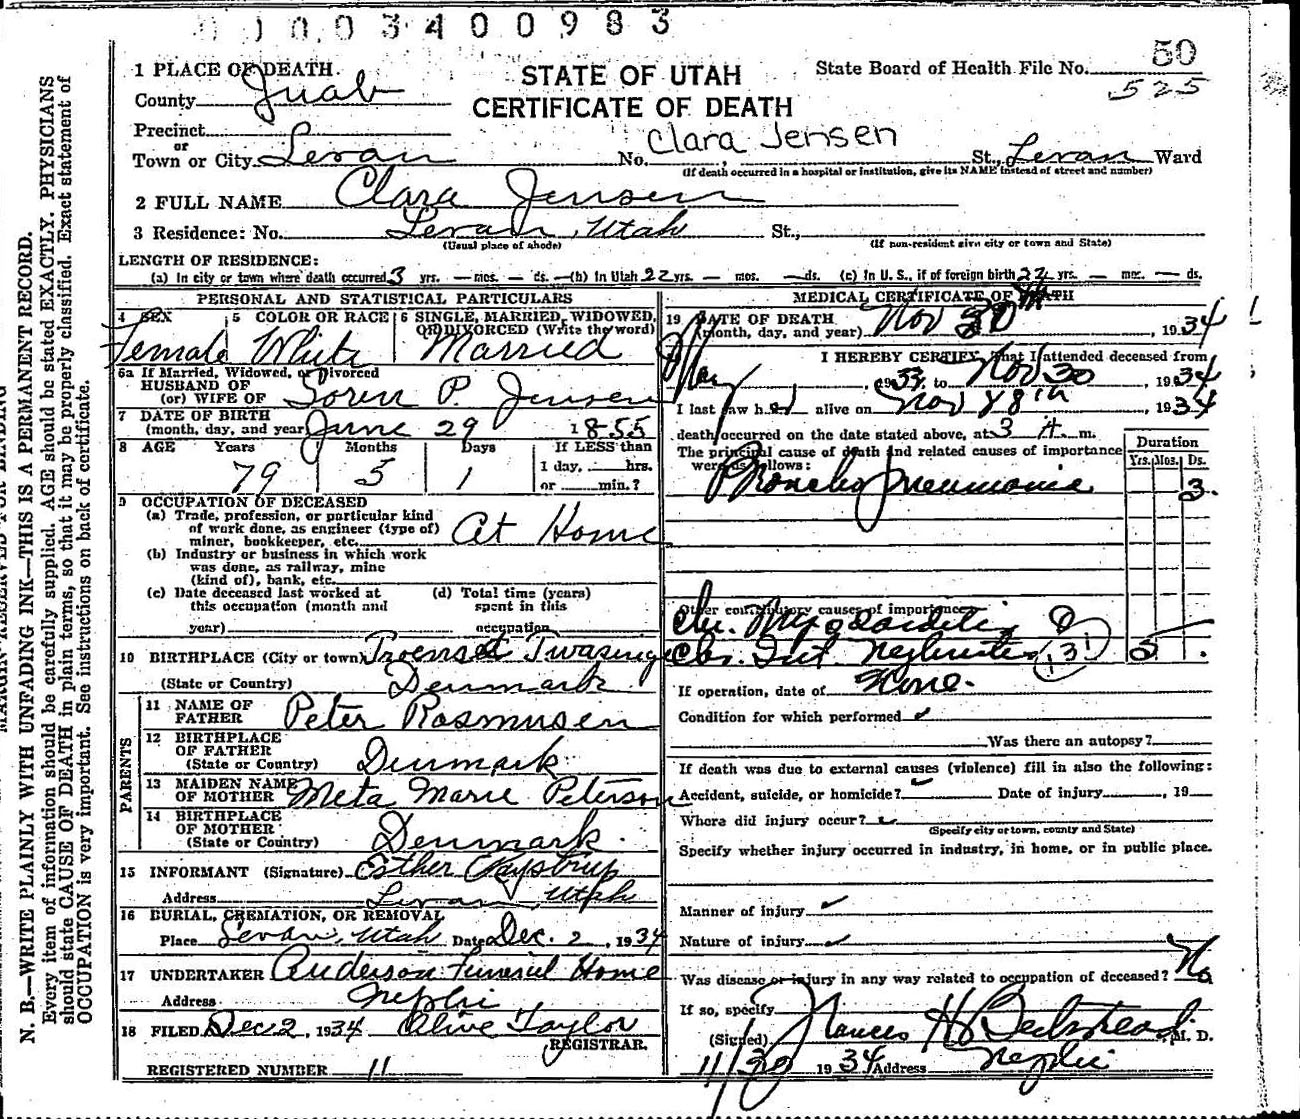 0100.3400983
50
525
1 PLACE OF DEATH
STATE OF UTAH
State Board of Health File No.
County Juab
CERTIFICATE OF DEATH
Precinct
or
Town or City Levan No. Clara Jensen St., Levan Ward
(If death occurred in a hospital or institution, give its NAME instead of street and number)
2 FULL NAME Clara Jensen
3 Residence: No. Levan, Utah St.,
(Usual place of abode) (If non-resident give city or town and State)
LENGTH OF RESIDENCE:
(a) In city or town where death occurred 3 yrs. — mos. — ds. (b) In Utah 22 yrs. — mos. — ds. (c) In U. S., if of foreign birth 22 yrs. — mos. — ds.
PERSONAL AND STATISTICAL PARTICULARS
4 SEX 5 COLOR OR RACE 6 SINGLE, MARRIED, WIDOWED, OR DIVORCED (Write the word)
Female White Married
6a If Married, Widowed, or Divorced
HUSBAND OF
(or) WIFE OF Soren P. Jensen
7 DATE OF BIRTH
(month, day, and year) June 29 1855
8 AGE Years Months Days If LESS than
79 5 1 1 day, hrs.
or min.?
9 OCCUPATION OF DECEASED
(a) Trade, profession, or particular kind
of work done, as engineer (type of)
miner, bookkeeper, etc. At Home
(b) Industry or business in which work
was done, as railway, mine
(kind of), bank, etc.
(c) Date deceased last worked at (d) Total time (years)
this occupation (month and spent in this
year) occupation
10 BIRTHPLACE (City or town)
(State or Country) Denmark
PARENTS
11 NAME OF
FATHER Peter Rasmusen
12 BIRTHPLACE
OF FATHER
(State or Country) Denmark
13 MAIDEN NAME
OF MOTHER Meta Marie Peterson
14 BIRTHPLACE
OF MOTHER
(State or Country) Denmark.
15 INFORMANT (Signature) Esther
Address Levan, Utah
16 BURIAL, CREMATION, OR REMOVAL
Place Levan, Utah Date Dec. 2, 1934
17 UNDERTAKER Anderson Funeral Home
Address Nephi
18 FILED Dec 2, 1934 Olive Taylor
REGISTRAR.
REGISTERED NUMBER 11
MEDICAL CERTIFICATE OF DEATH
19 DATE OF DEATH
(month, day, and year) Nov 30th, 1934
I HEREBY CERTIFY, That I attended deceased from
May, 1933, to Nov 30, 1934
I last saw her alive on Nov 28th, 1934
death occurred on the date stated above, at 3 A. m.
The principal cause of death and related causes of importance
were as follows:
Duration
Yrs. Mos. Ds.
Broncho Pneumonia 3.
Other contributory causes of importance
Chr. Myocarditis
Chr. Int. Nephritis 131 5
If operation, date of None.
Condition for which performed
Was there an autopsy?
If death was due to external causes (violence) fill in also the following:
Accident, suicide, or homicide? Date of injury , 19
Where did injury occur?
(Specify city or town, county and State)
Specify whether injury occurred in industry, in home, or in public place.
Manner of injury
Nature of injury
Was disease or injury in any way related to occupation of deceased? No
If so, specify
(Signed) H Beckstead, M. D.
11/30 1934 Address Nephi
MARGIN RESERVED FOR BINDING
N. B.—WRITE PLAINLY WITH UNFADING INK—THIS IS A PERMANENT RECORD.
Every item of information should be carefully supplied. AGE should be stated EXACTLY. PHYSICIANS
should state CAUSE OF DEATH in plain terms, so that it may be properly classified. Exact statement of
OCCUPATION is very important. See instructions on back of certificate.